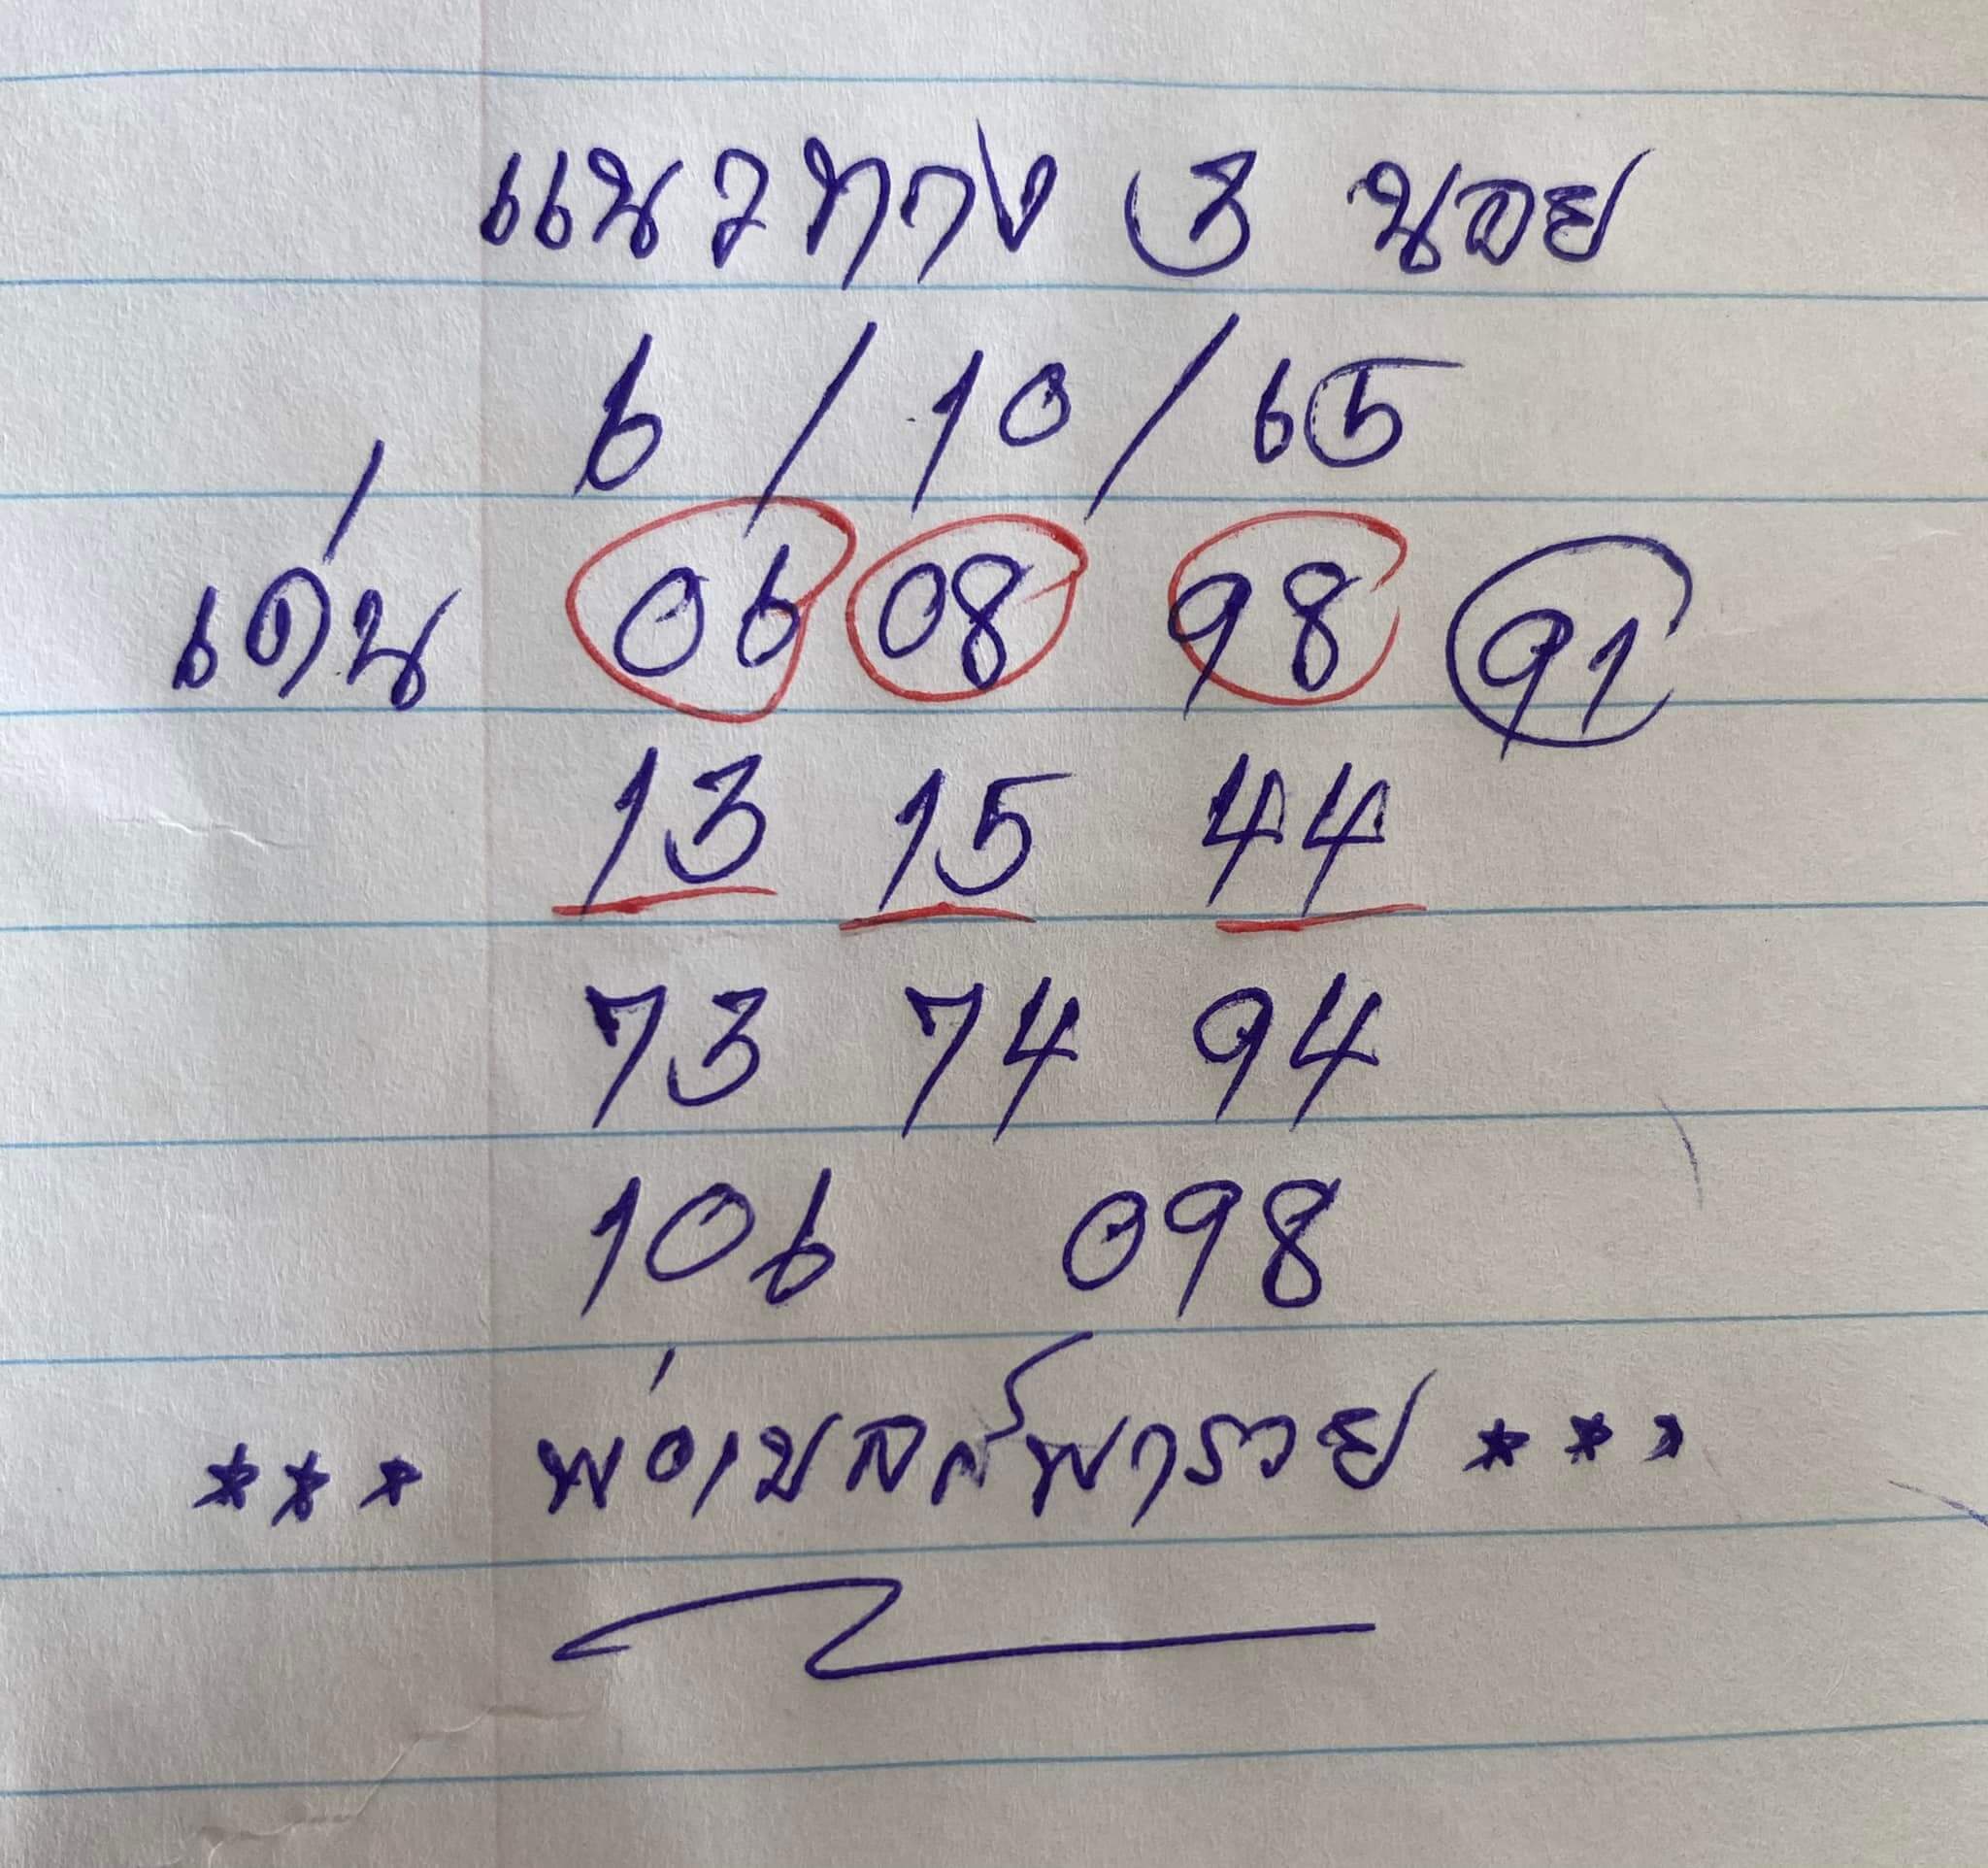 แนวทาง ฮ นอย
6/10/65
เด่น 06 08 98 91
13 15 44
73 74 94
106 098
*** พ่อเบลล์พารวย ***